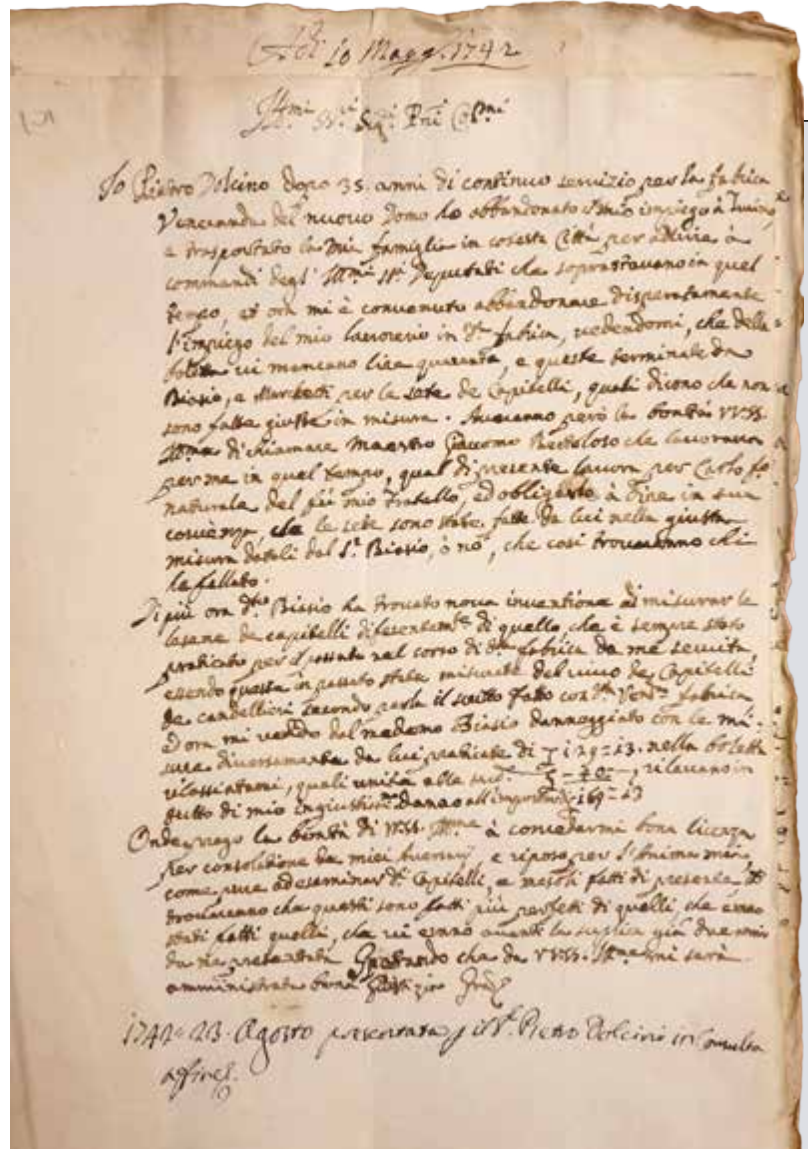 Adì 10 Magg. 1742
Io Pietro Dolcino dopo 35. anni di continuo servizio per la fabrica
Veneranda del nuovo Domo ho abbandonato il mio impiego à Turino,
e trasportato la mia famiglia in cotesta Città per
commandi degl' Ill:mi SS:ri Deputati che soprastavano in quel
tempo, et ora mi è convenuto abbandonare disperatamente
l'impiego del mio lavorerio in d:ta fabrica, vedendomi, che della
vi mancano lire quaranta, e queste terminate da
Biasio, e Marchetti per le sete de Capitelli, quali dicono che non
sono fatte giuste in misura. Averanno però la bontà VVSS.
Ill:me di chiamare Maestro Giacomo Bertoloso che lavorava
per me in quel tempo, qual di presente lavora per Carlo
naturale del fù mio Fratello, ed obligarlo à dire in sua
che le sete sono state fatte da lui nella giusta
misura datoli dal S:r Biasio, ò nò, che così trovaranno chi
ha fallato.
Di più ora d:to Biasio ha trovato nova inventione di misurar le
lesene de capitelli diferentem:te di quello, che è sempre stato
praticato per il passato nel corso di d:ta fabrica da me servita
essendo queste in passato state misurate del vivo de Capitelli
de candellieri secondo parla il scritto fatto con d:ta Ven:da fabrica
ed ora mi vedo dal medemo Biasio dannoggiato con le mi-
sure diversamente da lui praticate di 129=13. nella boletta
rilassiatami, quali unite alle 40, rilevano in
tutto di mio ingiustis:mo danno all'importo di 169=13
Onde prego la bontà di VVSS. Ill:me à concedermi bona licenza
per consolatione de miei, e riposo per l'Anima mia,
come pure ad esaminar d:ti Capitelli, e fatti di presente,
trovaranno che questi sono fatti più perfeti di quelli, che erano
stati fatti quelli, che vi erano avanti la suplica già due
da me presentata Sperando che da VVSS. Ill:me mi sarà
amministrata bona Giustizia
1742 = 23. Agosto presentata p il S:r Pietro Dolcini in Consulta